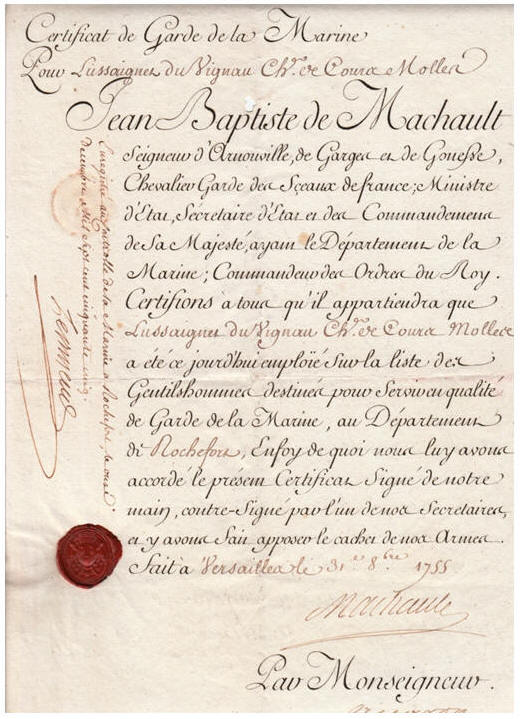 Certificat de Garde de la Marine
Pour Lussaignet du Vignau Chr. de Coura Molles
Jean Baptiste de Machault
Seigneur d'Arnouville, de Garges et de Gonesse,
Chevalier Garde des Sçeaux de france; Ministre
d'Etat, Sécretaire d'Etat et des Commandemens
de Sa Majesté, ayant le Département de la
Marine; Commandeur des Ordres du Roy.
Certifions à tous qu'il appartiendra que
Lussaignet du Vignau Chr. de Coura Molles
a eté ce jourdhui emploïé Sur la liste des
Gentilshommes destinés pour Servir en qualité
de Garde de la Marine, au Département
de Rochefort, Enfoy de quoi nous luy avons
accordé le présent Certificat Signé de notre
main, contre-Signé par l'un de nos Secretaires,
et y avons fait apposer le cachet de nos Armes.
Fait à Versailles le 31e. 8bre 1755
Machault
Par Monseigneur.
Enregistré au de la Marine à Rochefort, le onze
mil sept cent cinquante